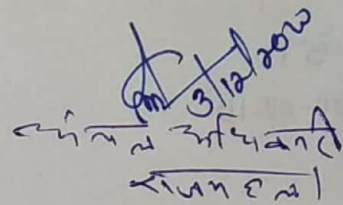 3/12/2020
अंचल अधिकारी
राजमहल।